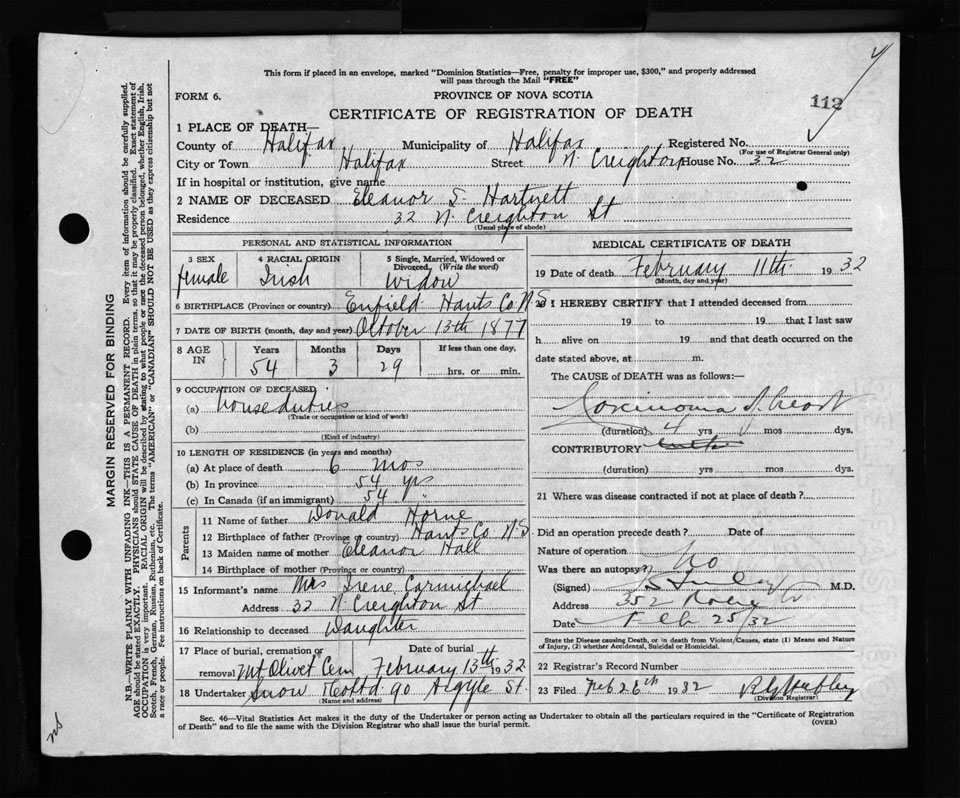 This form if placed in an envelope, marked "Dominion Statistics—Free, penalty for improper use, $300," and properly addressed
will pass through the Mail "FREE"
FORM 6.
PROVINCE OF NOVA SCOTIA
112
CERTIFICATE OF REGISTRATION OF DEATH
1 PLACE OF DEATH—
County of Halifax Municipality of Halifax Registered No.
(For use of Registrar General only)
City or Town Halifax Street N. Creighton House No. 32
If in hospital or institution, give name
2 NAME OF DECEASED Eleanor S. Hartnett
Residence 32 N. Creighton St
(Usual place of abode)
PERSONAL AND STATISTICAL INFORMATION
3 SEX 4 RACIAL ORIGIN 5 Single, Married, Widowed or
Divorced, (Write the word)
female Irish Widow
6 BIRTHPLACE (Province or country) Enfield Hants Co N.S
7 DATE OF BIRTH (month, day and year) October 13th 1877
8 AGE IN Years Months Days If less than one day,
54 3 29 hrs. or min.
9 OCCUPATION OF DECEASED
(a) house duties
(Trade or occupation or kind of work)
(b)
(Kind of industry)
10 LENGTH OF RESIDENCE (in years and months)
(a) At place of death 6 mos
(b) In province 54 yrs
(c) In Canada (if an immigrant) 54 "
Parents
11 Name of father Donald Horne
12 Birthplace of father (Province or country) Hants Co N.S
13 Maiden name of mother Eleanor Hall
14 Birthplace of mother (Province or country)
15 Informant's name Mrs Irene Carmichael
Address 32 N. Creighton St
16 Relationship to deceased Daughter
17 Place of burial, cremation or removal Date of burial
Mt Olivet Cem February 13th 1932
18 Undertaker Snow & Co Ltd. 90 Argyle St.
(Name and address)
MEDICAL CERTIFICATE OF DEATH
19 Date of death February 11th 1932
(Month, day and year)
20 I HEREBY CERTIFY that I attended deceased from
19 to 19 that I last saw
h alive on 19 and that death occurred on the
date stated above, at m.
The CAUSE of DEATH was as follows:—
Carcinoma of
(duration) 4 yrs mos dys.
CONTRIBUTORY
(duration) yrs mos dys.
21 Where was disease contracted if not at place of death?
Did an operation precede death? Date of
Nature of operation
Was there an autopsy? No
(Signed) M.D.
Address 352
Date Feb 25/32
State the Disease causing Death, or in death from Violent Causes, state (1) Means and Nature
of Injury, (2) whether Accidental, Suicidal or Homicidal.
22 Registrar's Record Number
23 Filed Feb 26th 1932
(Division Registrar)
Sec. 46—Vital Statistics Act makes it the duty of the Undertaker or person acting as Undertaker to obtain all the particulars required in the "Certificate of Registration
of Death" and to file the same with the Division Registrar who shall issue the burial permit.
(OVER)
MARGIN RESERVED FOR BINDING
N.B.—WRITE PLAINLY WITH UNFADING INK—THIS IS A PERMANENT RECORD. Every item of information should be carefully supplied.
AGE should be stated EXACTLY. PHYSICIANS should STATE CAUSE OF DEATH in plain terms, so that it may be properly classified. Exact statement of
OCCUPATION is very important. RACIAL ORIGIN will be described by stating to what people or race the deceased person belonged, whether English, Irish,
Scotch, French, German, Russian, Ruthenian, etc. The terms "AMERICAN" or "CANADIAN" SHOULD NOT BE USED as they express citizenship but not
a race or people. Fee instructions on back of Certificate.